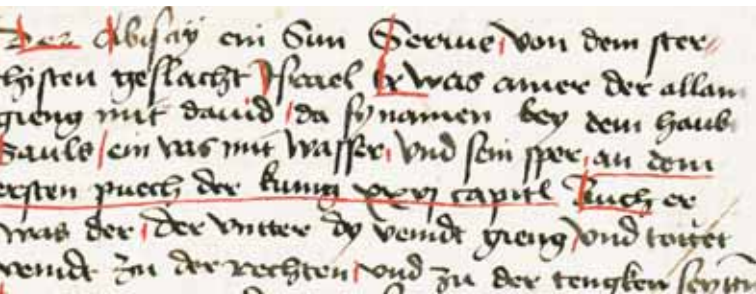 Der Abisay ein Sun Seruie von dem ster
chisten geslächt Israel Er was ainer der allain
gieng mit dauid da sy namen bey dem haub
Sauls ein vas mit wasser vnd sein sper an dem
ersten puech der kunig xxvi capitl Auch er
was der der vntter dy veindt gieng vnd tottet
veindt zu der rechten vnd zu der tengken seyttn